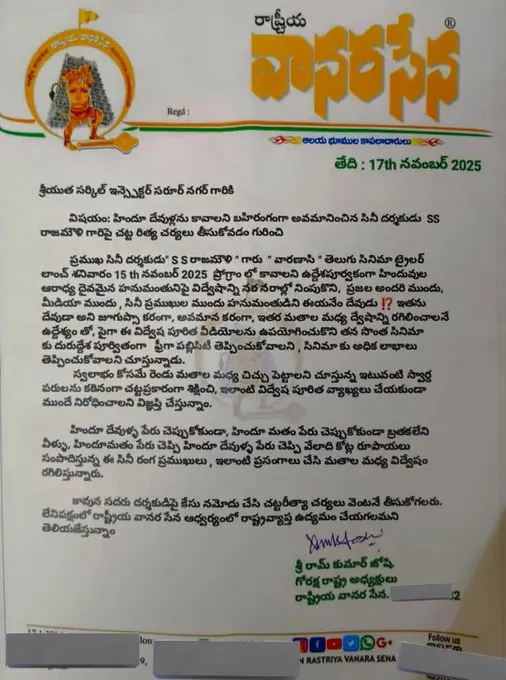 రాష్ట్రీయ
వానరసేన
®
రాష్ట్రీయ వానరసేన
Regd :
ఆలయ భూముల కాపలాదారులు
తేది : 17th నవంబర్ 2025
శ్రీయుత సర్కిల్ ఇన్స్పెక్టర్ సరూర్ నగర్ గారికి
విషయం: హిందూ దేవుళ్లను కావాలని బహిరంగంగా అవమానించిన సినీ దర్శకుడు SS
రాజమౌళి గారిపై చట్ట రిత్య చర్యలు తీసుకోవడం గురించి
ప్రముఖ సినీ దర్శకుడు" S S రాజమౌళి " గారు " వారణాసి " తెలుగు సినిమా ట్రైలర్
లాంచ్ శనివారం 15 th నవంబర్ 2025 ప్రోగ్రాం లో కావాలని ఉద్దేశపూర్వకంగా హిందువుల
ఆరాధ్య దైవమైన హనుమంతునిపై విద్వేషాన్ని నర నరాల్లో నింపుకొని, ప్రజల అందరి ముందు,
మీడియా ముందు , సినీ ప్రముఖుల ముందు హనుమంతుడిని ఈయనేం దేవుడు ⁉ ఇతను
దేవుడా అని జుగుప్సా కరంగా, అవమాన కరంగా, ఇతర మతాల మధ్య ద్వేషాన్ని రగిలించాలనే
ఉద్దేశ్యం తో, పైగా ఈ విద్వేష పూరిత వీడియోలను ఉపయోగించుకొని తన సొంత సినిమా
కు దురుద్దేశ పూర్వితంగా ఫ్రీగా పబ్లిసిటీ తెప్పించుకోవాలని , సినిమా కు అధిక లాభాలు
తెప్పించుకోవాలని చూస్తున్నాడు.
స్వలాభం కోసమే రెండు మతాల మధ్య చిచ్చు పెట్టాలని చూస్తున్న ఇటువంటి స్వార్థ
పరులను కఠినంగా చట్టప్రకారంగా శిక్షించి, ఇలాంటి విద్వేష పూరిత వ్యాఖ్యలు చేయకుండా
ముందే నిరోధించాలని విజ్ఞప్తి చేస్తున్నాం.
హిందూ దేవుళ్ళ పేరు చెప్పుకోకుండా, హిందూ మతం పేరు చెప్పుకోకుండా బ్రతకలేని
వీళ్ళు, హిందూమతం పేరు చెప్పి హిందూ దేవుళ్ళ పేరు చెప్పి వేలాది కోట్ల రూపాయలు
సంపాదిస్తున్న ఈ సినీ రంగ ప్రముఖులు , ఇలాంటి ప్రసంగాలు చేసి మతాల మధ్య విద్వేషం
రగిలిస్తున్నారు.
కావున సదరు దర్శకుడిపై కేసు నమోదు చేసి చట్టరీత్యా చర్యలు వెంటనే తీసుకోగలరు.
లేనిపక్షంలో రాష్ట్రీయ వానర సేన ఆధ్వర్యంలో రాష్ట్రవ్యాప్త ఉద్యమం చేయగలమని
తెలియజేస్తున్నాం
శ్రీ రామ్ కుమార్ జోషి.
గోరక్ష రాష్ట్ర అధ్యక్షులు
రాష్ట్రీయ వానర సేన.
Follow us
N RASTRIYA VANARA SENA